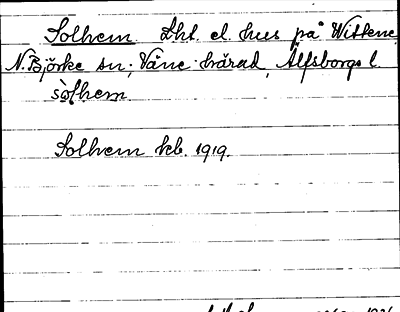 Solhem. Lht. el. hus på Wittene
N. Björke sn; Väne härad, Älfsborgs l.
sòlhem.
Solhem kb. 1919.